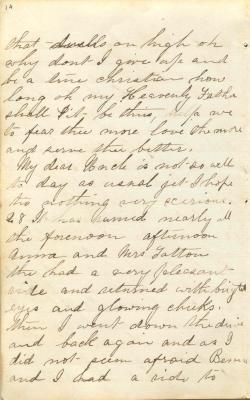 14
that dwells on high oh
why dont I give up and
be a true christian how
long oh my Heavenly Father
shall it be thus, help me
to fear thee more love thee more
and serve thee better.
My dear Uncle is not so well
to day as usual yet I hope
tis nothing very scerious.
28 It has rained nearly all
the forenoon afternoon
Anna and Mrs Totton
the had a very pleasant
ride and returned with bright
eyes and glowing cheeks.
then I went down the drive
and back again and as I
did not seem afraid
and I had a ride to